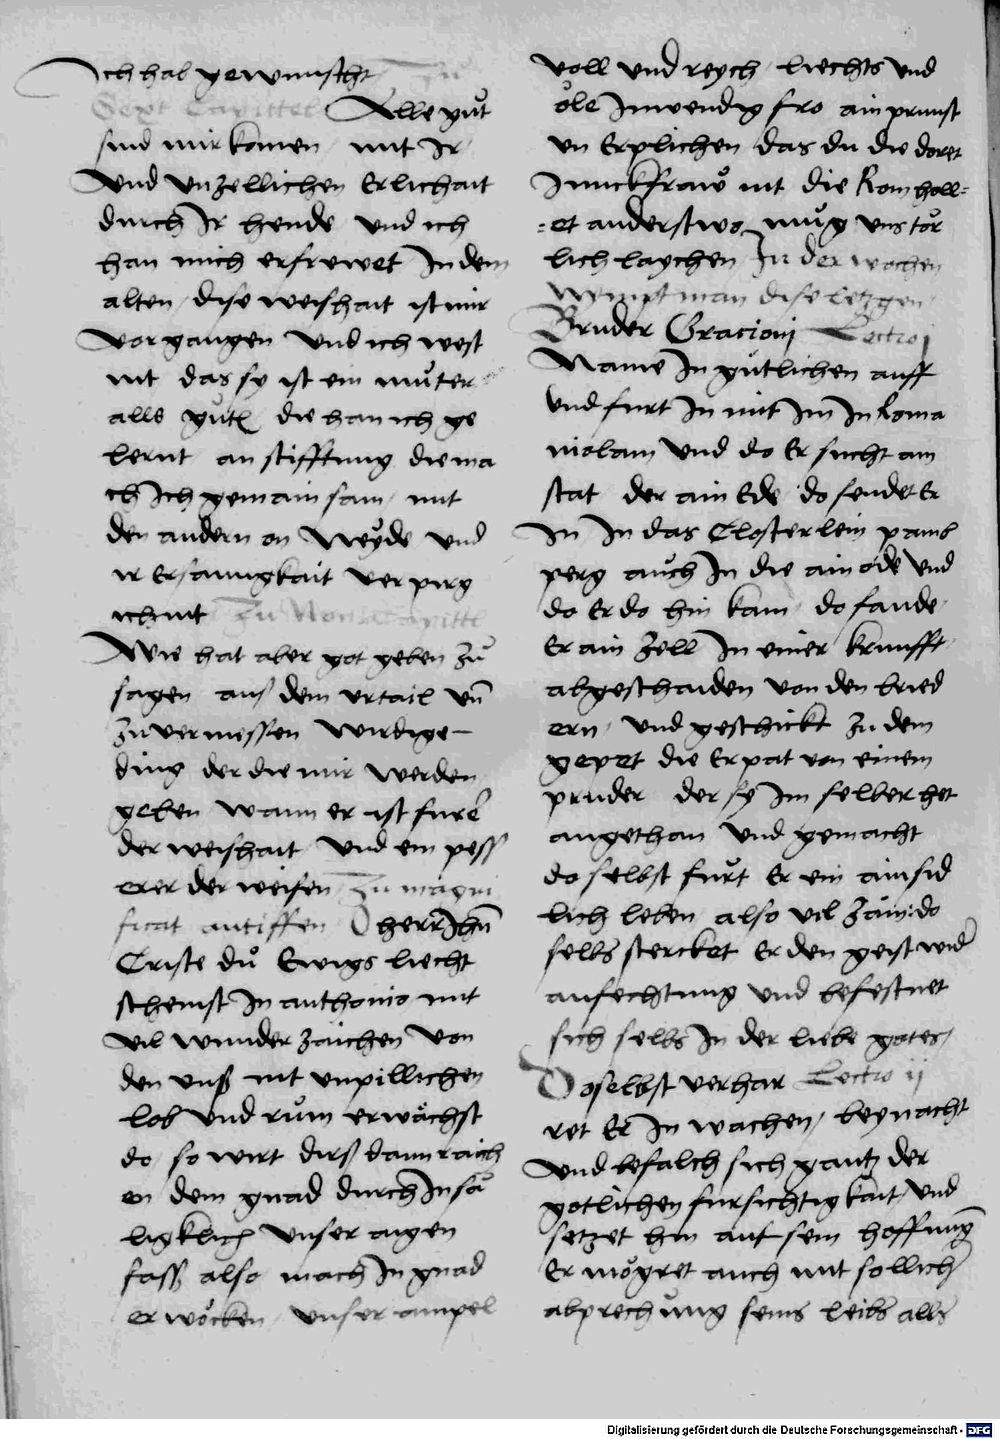 Ich hab gewunscht Zu
Sext Capittel Alle gůt
sind mir komen mit Ir
Vnd vnzellichen Erlichait
durch Ir hende vnd ich
han mich erfrewet In dem
alten dise weishait ist mir
Vor gangen Vnd ich west
nit das sy ist ein můter
alls gůtz die han ich ge
lernt an stifftung die ma
ch Ich gemainsam mit
den andern on Neyde vnd
ir Ersamigkait verpirg
ich nit Zu Non Capittl
Wie hat aber got geben zů
sagen aus dem vrtail vñ
zůvermessen wirdige
ding der die mir werden
geben wann er ist furer
der weishait Vnd ein pess
erer der weisen Zu magni
ficat antiffen O herr Ihũ
Criste dů Ewigs liecht
scheinst In anthonio mit
vil wunderzaichen von
den vnß nit vnpillichen
lob vnd rům erwächst
do so wirt dirß dann raich
en dem gnad durch In sä
ligklich vnser aigen
fass also mach In gnad
erwöcken vnser ampel
voll vnd reych liechts vnd
öle Inwendig fro ain prunst
vn Erplichen das du die doret
Iunckfraw nit die kom holl=
=et anderstwo můg vns tör
lich laychen In der wochen
Nympt man dise letzgen
Bruder Gracioni Lectio j
Name In gůtlichen auff
Vnd furt In mit Im In Roma
niolam Vnd do Er sucht am
stat der ain Ede do sendet Er
In In das Closterlein pamb
perg auch In die ainöde Vnd
do Er do hin kam do fande
Er ain Zell In einer krufft
abgeschaiden von den brued
ern Vnd geschickt zu dem
gepet die Er pat von einem
pruder der sy Im selber het
angethan Vnd gemacht
do selbst fůrt Er ein ainsid
lich leben also vil Zäm do
selbs stercket Er den geist wider
anfechtung vnd befestnet
sich selbs In der liebe gotes
Doselbst verhar Lectio ij
ret Er In wachen bey nacht
Vnd befalch sich gantz der
gotlichen fursichtigkait Vnd
setzet hin auf sein hoffnung
Er mögret auch mit sollich
abprechung seins leibs alls